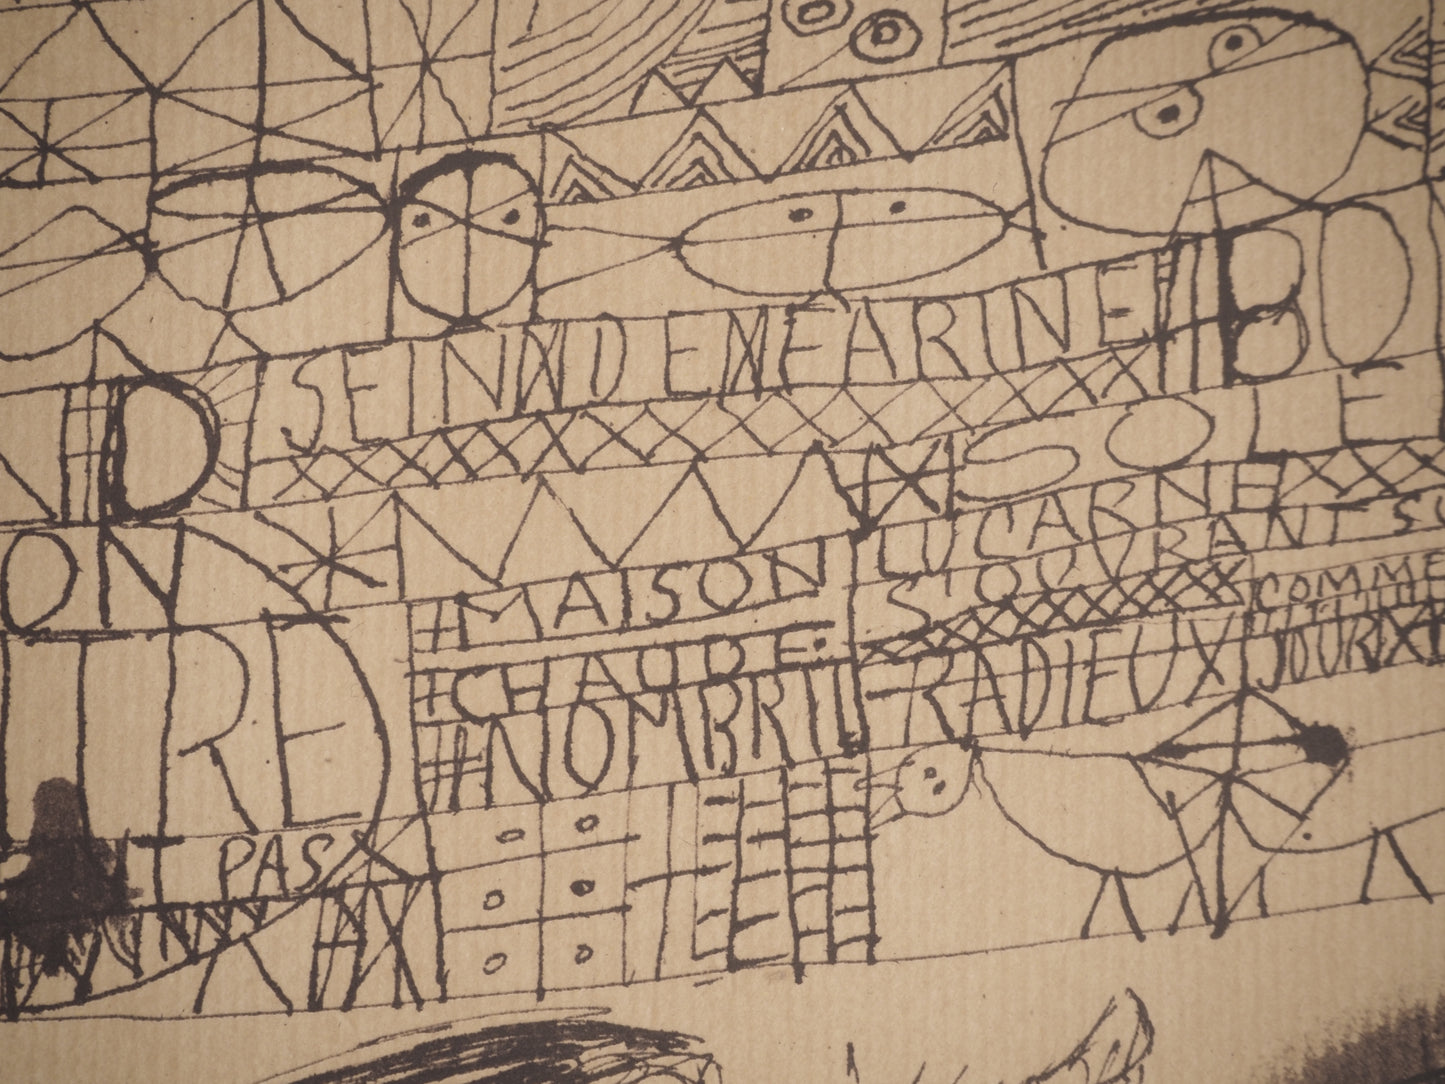 SEIN D ENFARINE BO
D
SOLE
ON
LUCARNE
MAISON S'OUVRANT SO
COMME
CHAUDE. UN
TRE NOMBRIL RADIEUX JOUR
PAS